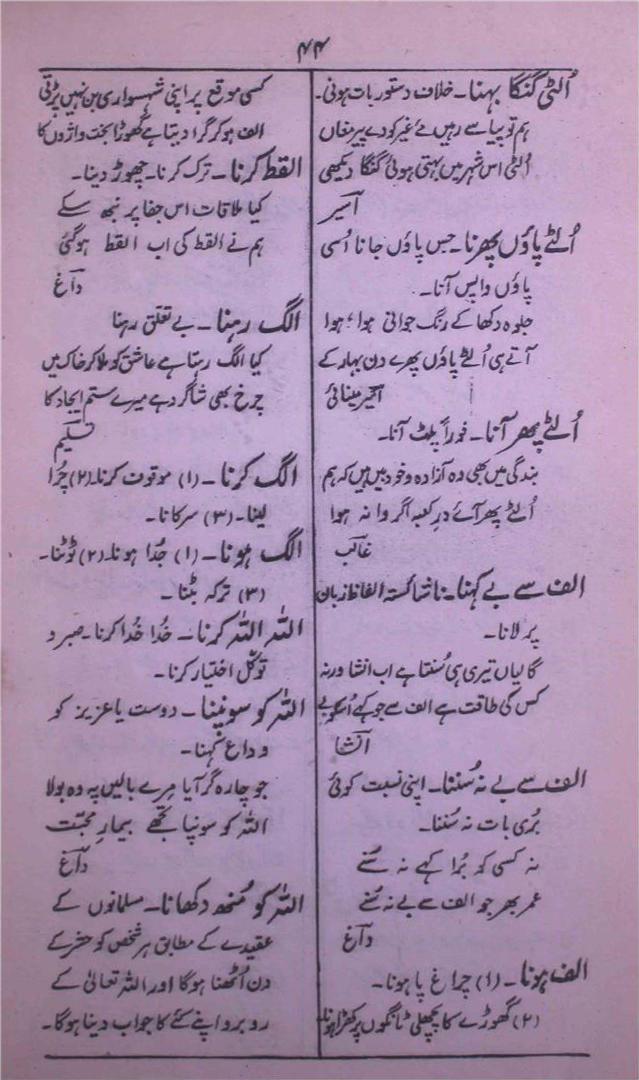 ۴۴
اُلٹی گنگا بہنا۔ خلاف دستور بات ہونی۔
ہم تو پیاسے رہیں مے غیر کو دے پیرِ مغاں
اُلٹی اس شہر میں بہتی ہوئی گنگا دیکھی
اسیر
اُلٹے پاؤں پھرنا۔ جس پاؤں جانا اُسی
پاؤں واپس آنا۔
جلوہ دکھا کے رنگ جوانی ہوا ہوا
آتے ہی اُلٹے پاؤں پھرے دن بہار کے
امیر مینائی
اُلٹے پھر آنا۔ فوراً پلٹ آنا۔
بندگی میں بھی وہ آزادہ و خود بیں ہیں کہ ہم
اُلٹے پھر آئے درِ کعبہ اگر وا نہ ہوا
غالب
الف سے بے کہنا۔ ناشائستہ الفاظ زبان
پر لانا۔
گالیاں تیری ہی سُنتا ہے اب انشا ورنہ
کس کی طاقت ہے الف سے جو کہے اُسکو بے
انشا
الف سے بے نہ سُننا۔ اپنی نسبت کوئی
بُری بات نہ سُننا۔
نہ کسی کو بُرا کہے نہ سُنے
عمر بھر جو الف سے بے نہ سُنے
داغ
الف ہونا۔ (۱) چراغ پا ہونا۔
(۲) گھوڑے کا پچھلی ٹانگوں پر کھڑا ہونا۔
کسی موقع پر اپنی شہسواری بن نہیں پڑتی
الف ہو کر گرا دیتا ہے گھوڑا بخت واژوں کا
القط کرنا۔ ترک کرنا۔ چھوڑ دینا۔
کیا ملاقات اس جفا پر نبھ سکے
ہم نے القط کی اب القط ہو گئی
داغ
الگ رہنا۔ بے تعلق رہنا
کیا الگ رہتا ہے عاشق کو ملا کر خاک میں
چرخ بھی شاگرد ہے میرے ستم ایجاد کا
تسلیم
الگ کرنا۔ (۱) موقوف کرنا۔ (۲) چُرا
لینا۔ (۳) سرکانا۔
الگ ہونا۔ (۱) جُدا ہونا۔ (۲) ٹوٹنا۔
(۳) ترکہ بٹنا۔
اللہ اللہ کرنا۔ خُدا خُدا کرنا۔ صبر و
توکّل اختیار کرنا۔
اللہ کو سونپنا۔ دوست یا عزیز کو
وداع کہنا۔
جو چارہ گر آیا مِرے بالیں پہ وہ بولا
اللہ کو سونپا تجھے بیمارِ محبّت
داغ
اللہ کو مُنھ دکھانا۔ مسلمانوں کے
عقیدے کے مطابق ہر شخص کو حشر کے
دن اُٹھنا ہوگا اور اللہ تعالیٰ کے
روبرو اپنے کئے کا جواب دینا ہوگا۔